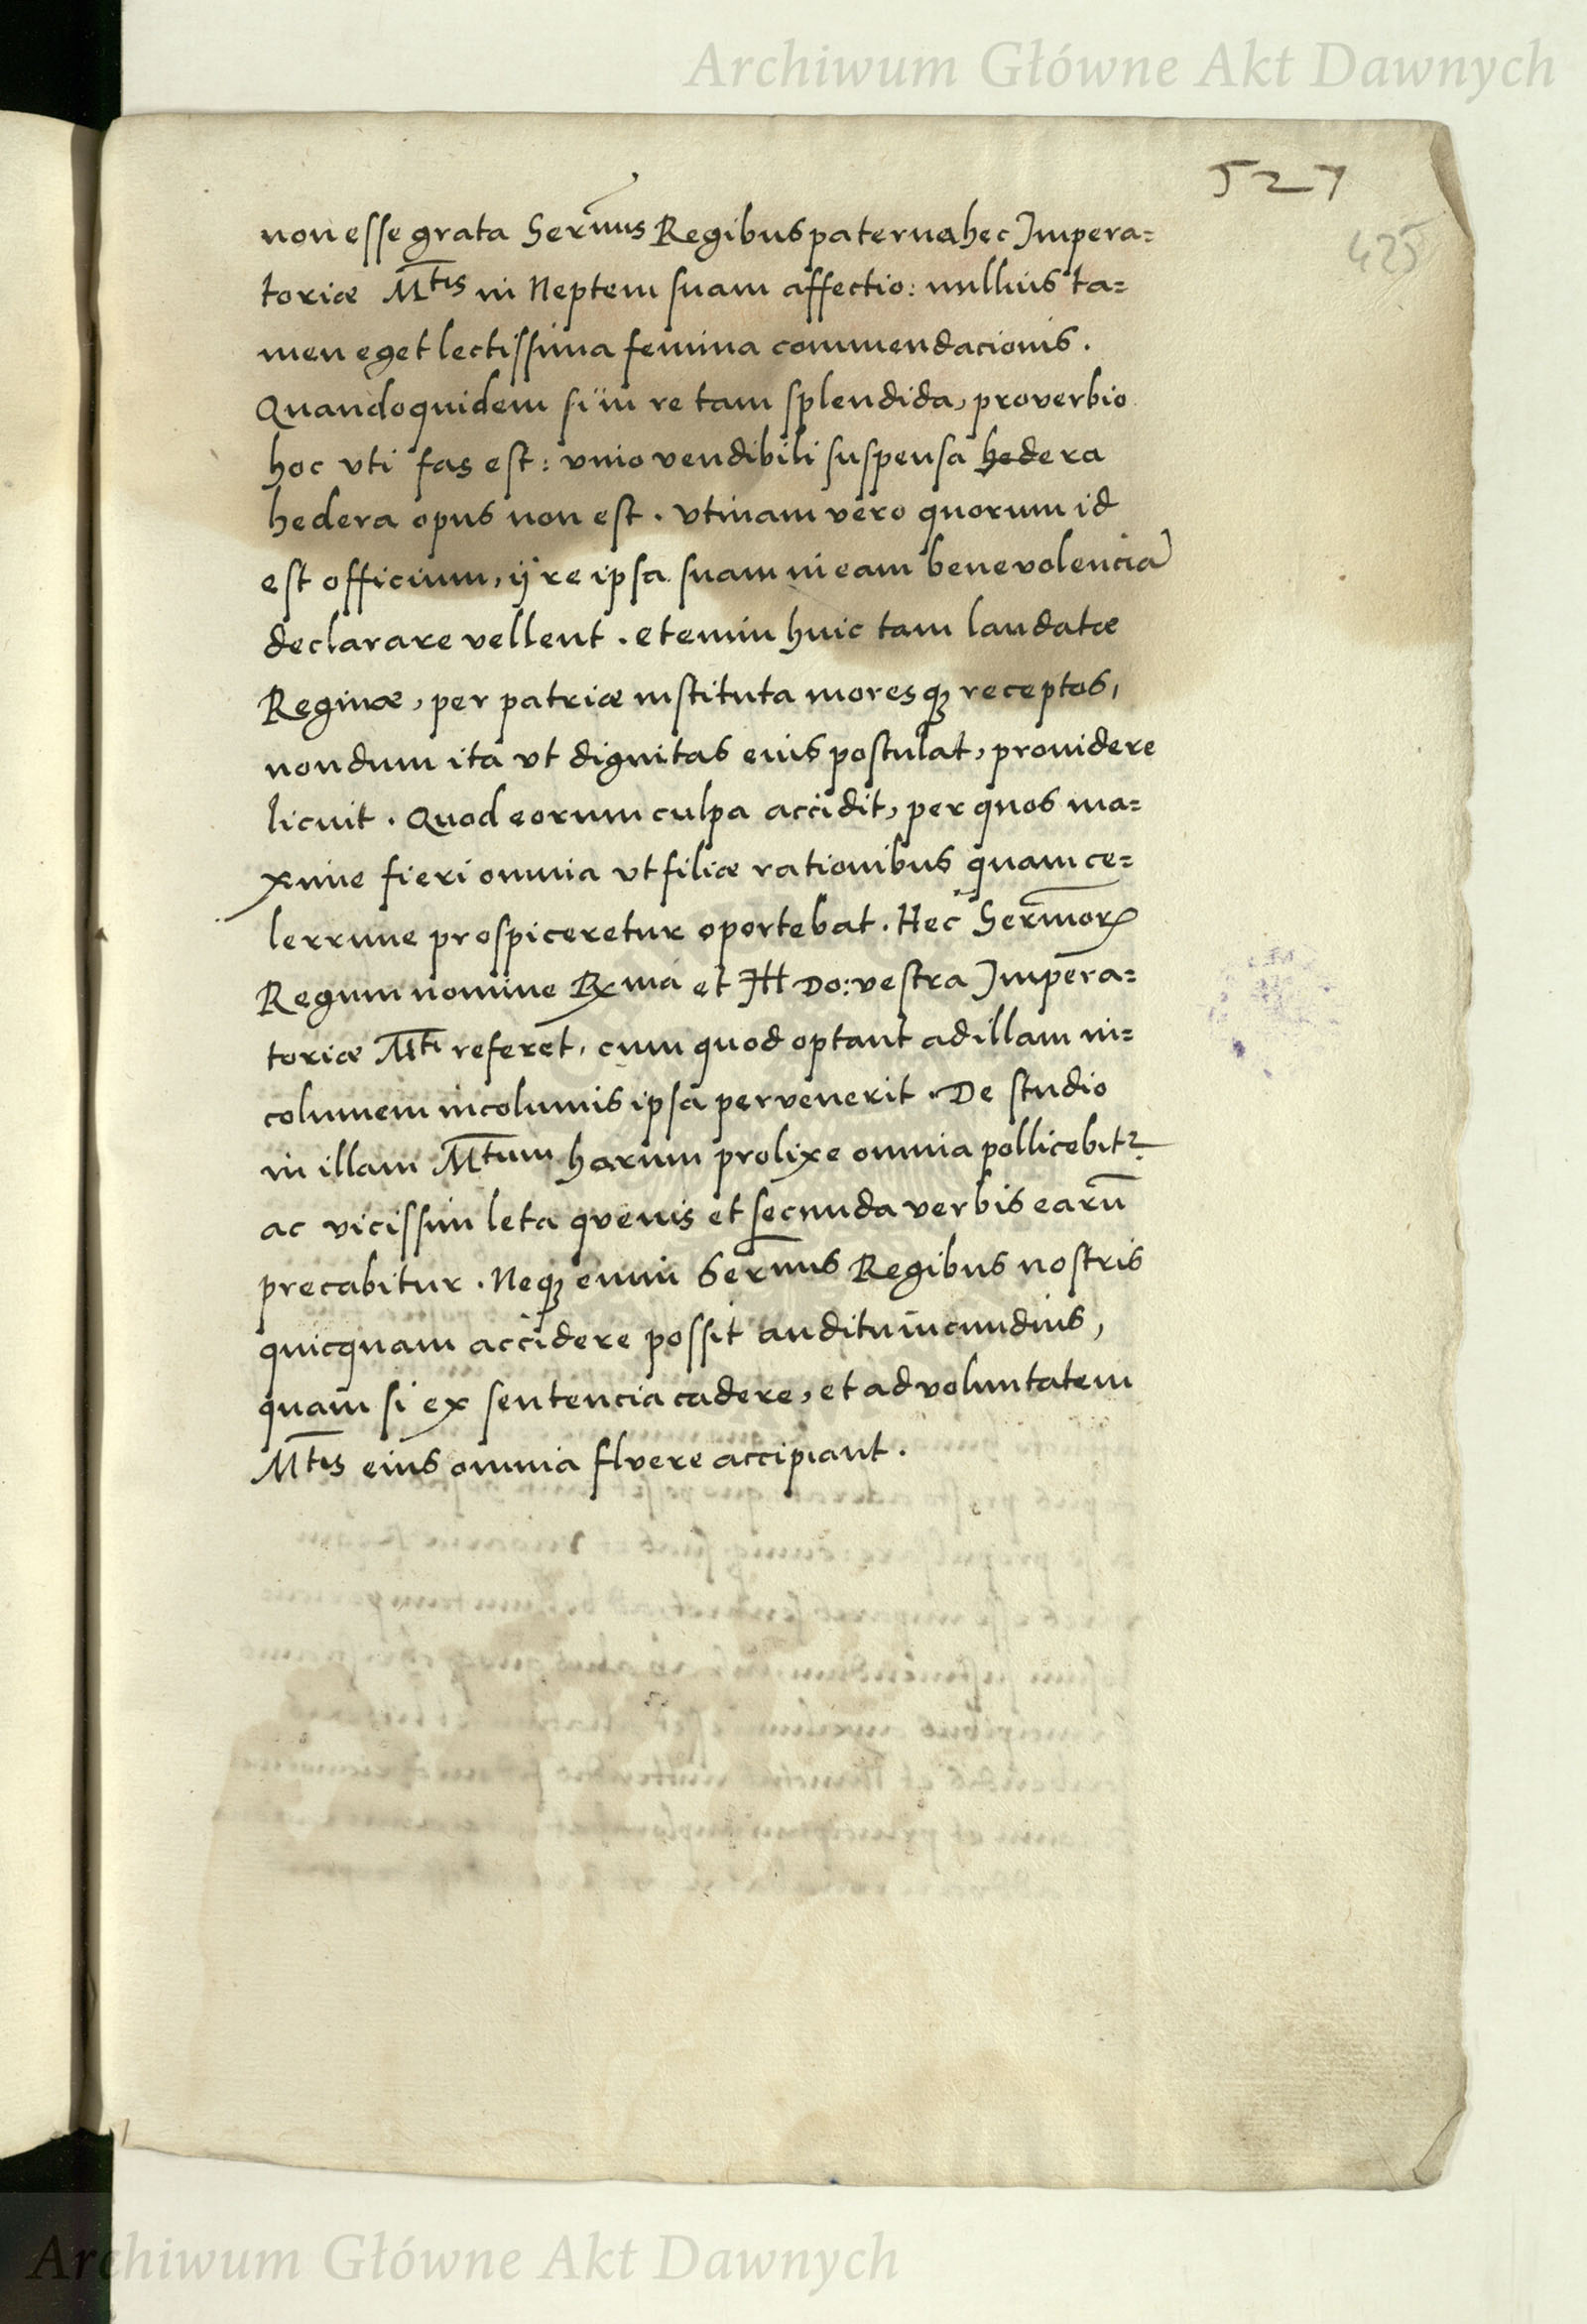 Archiwum Główne Akt Dawnych
527
425
non esse grata Ser̅mis Regibus paterna hec Impera=
toriæ M̅tis in Neptem suam affectio: nullius ta=
men eget lectissima femina commendacionis.
Quandoquidem si in re tam splendida, proverbio
hoc vti fas est: vino vendibili suspensa hedera
hedera opus non est. vtinam vero quorum id
est officium, ij re ipsa suam in eam benevolencia̅
declarare vellent. etenim huic tam laudatæ
Reginæ, per patriæ instituta moresqꝫ receptos,
nondum ita vt dignitas eius postulat, prouidere
licuit. Quod eorum culpa accidit, per quos ma=
xime fieri omnia vt filiæ rationibus quam ce=
lerrime prospiceretur oportebat. Hec Ser̅morꝝ
Regum nomine Rxma et Ill Do: vestra Impera=
toriæ M̅ti referet, cum quod optant ad illam in=
columem incolumis ipsa pervenerit. De studio
in illam M̅tum harum prolixe omnia pollicebit᷑
ac vicissim leta quevis et secunda verbis earu̅
precabitur. Neqꝫ enim Ser̅mis Regibus nostris
quicquam accidere possit auditu iucundius,
quam si ex sentencia cadere, et ad voluntatem
M̅tis eius omnia fluere accipiant.
Archiwum Główne Akt Dawnych